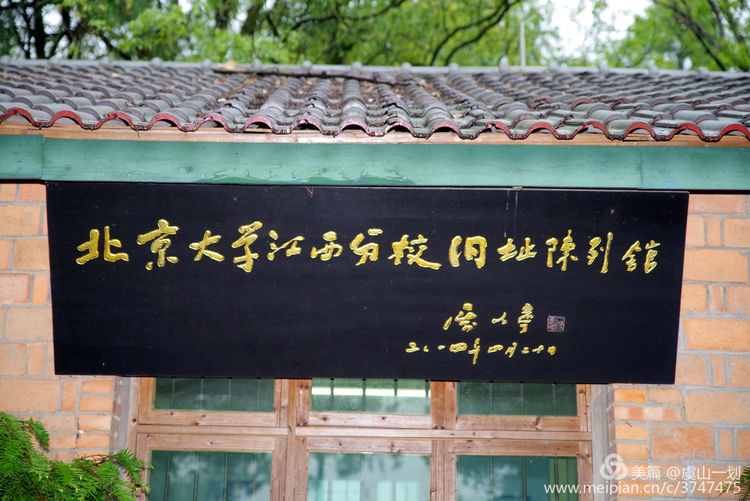 北京大学江西分校旧址陈列馆
二〇一四年四月二十日
美篇 @虞山一划
www.meipian.cn/c/3747475